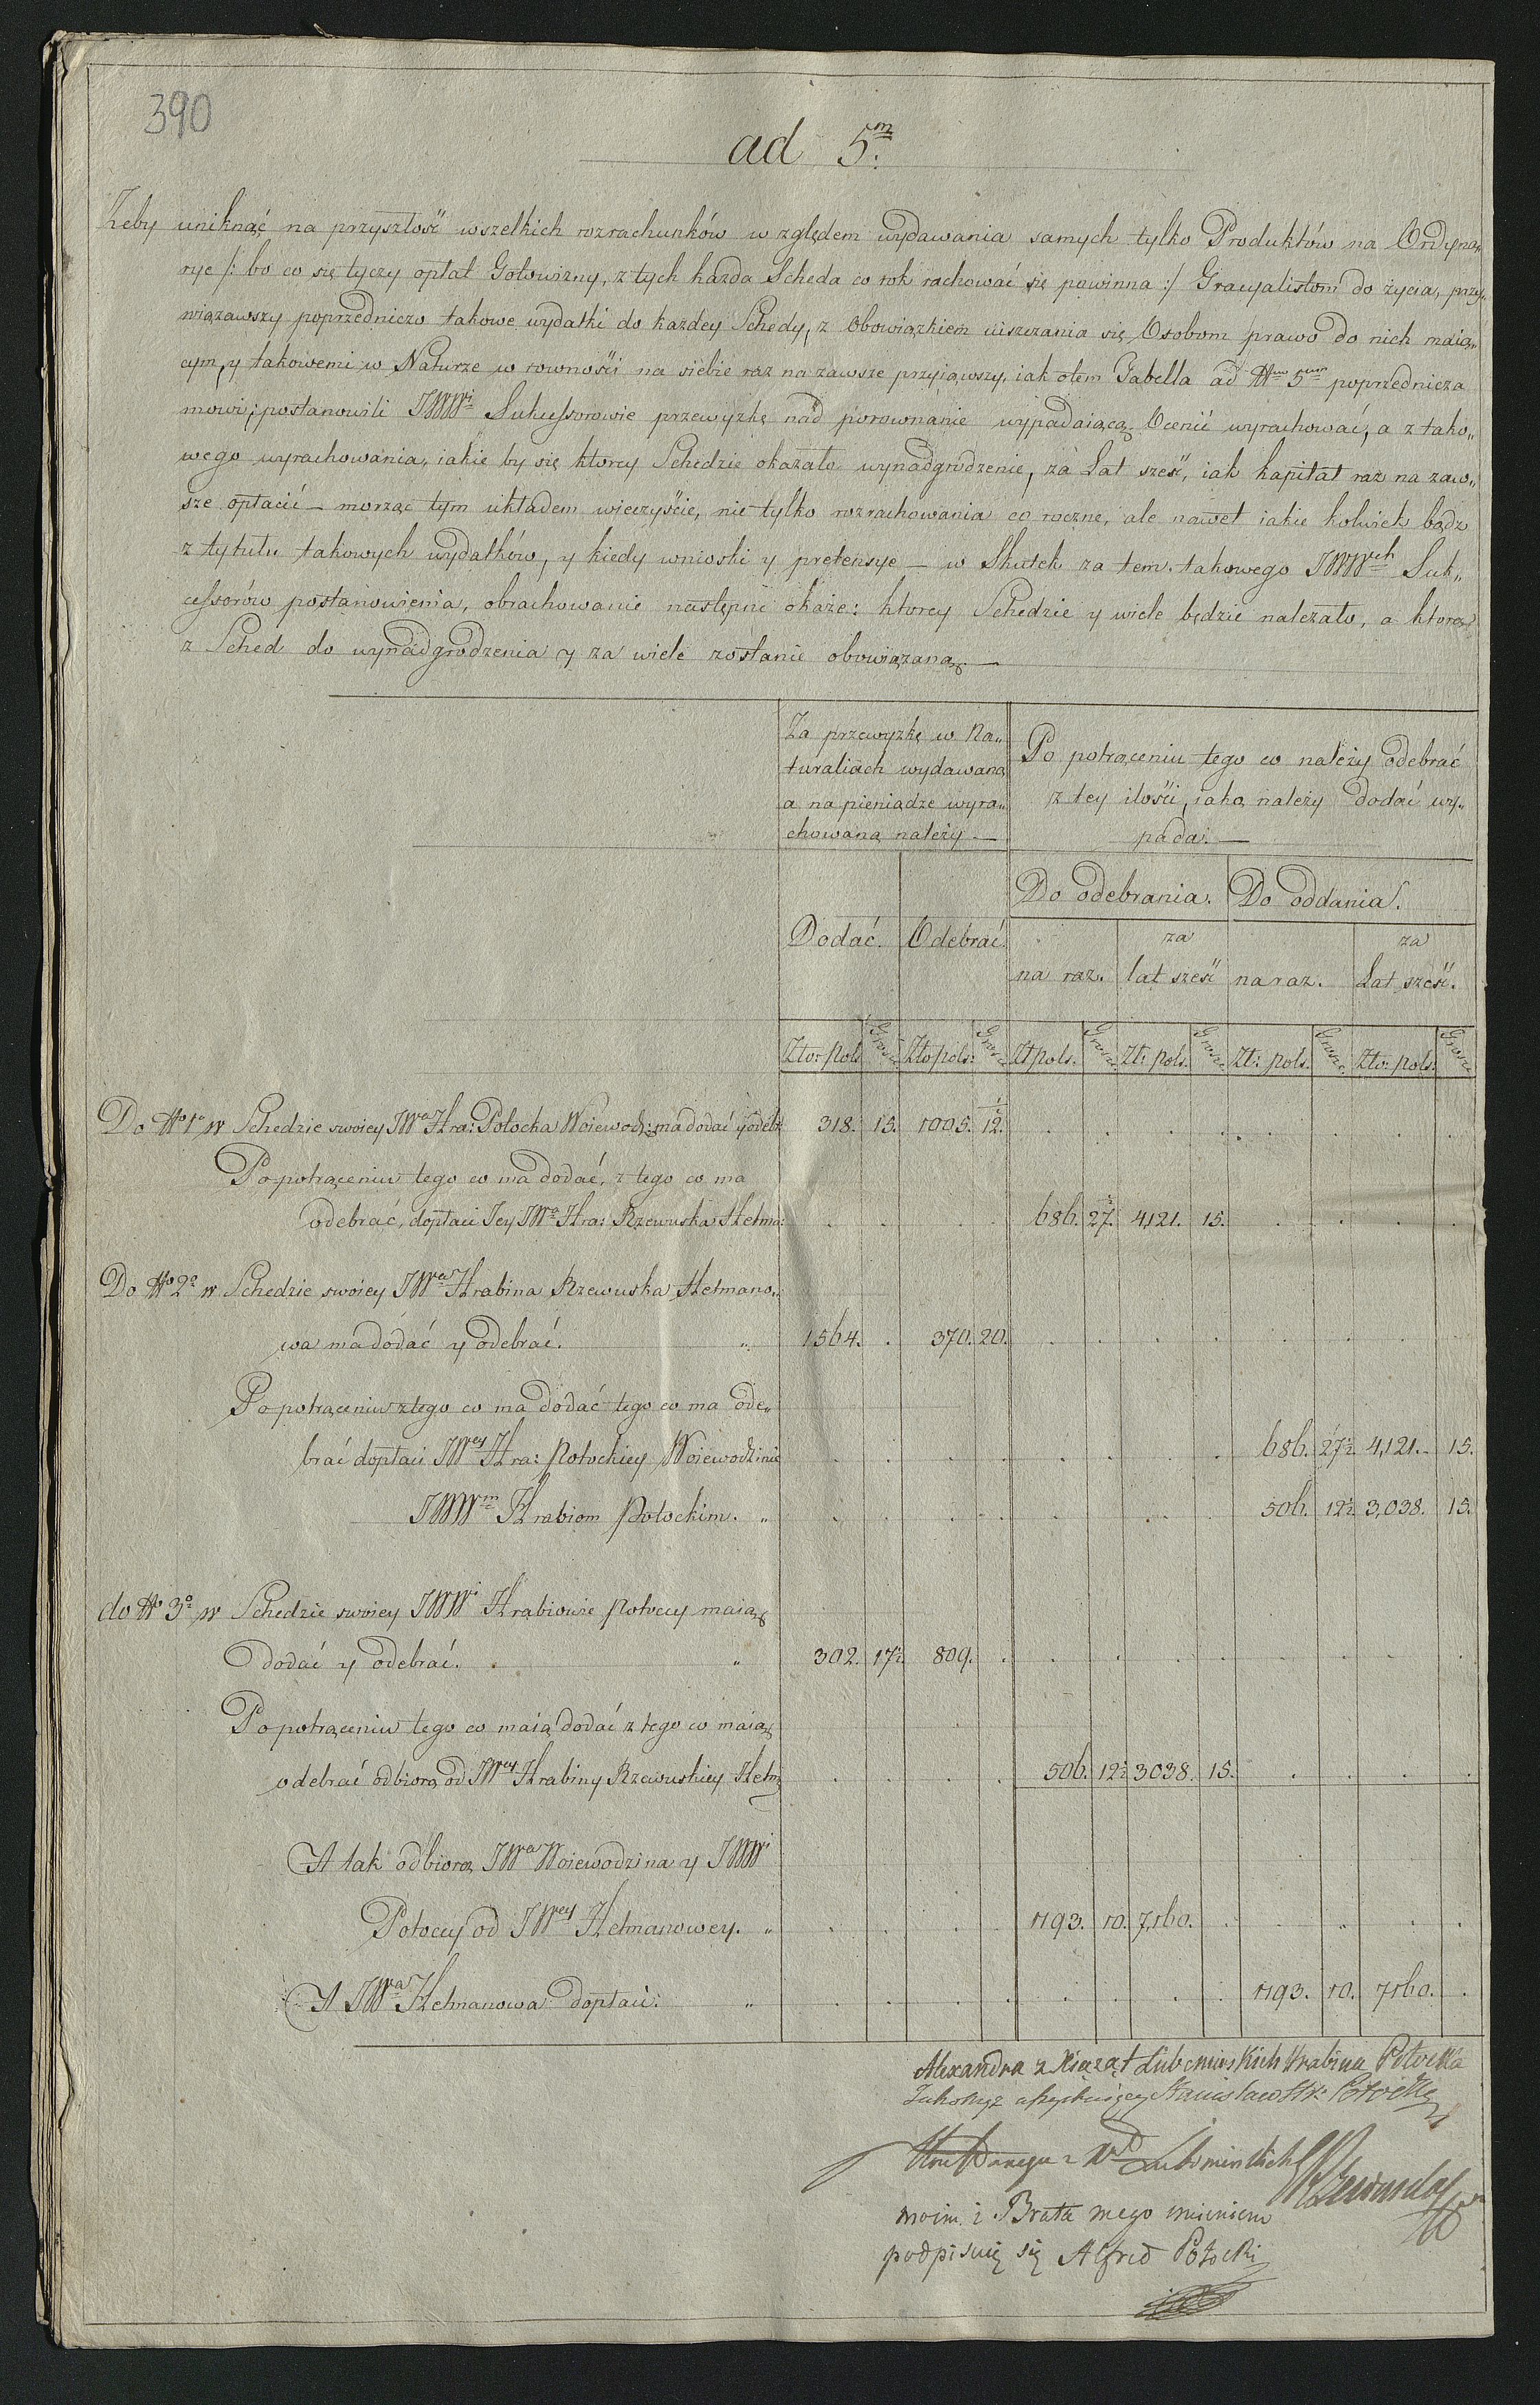 390
ad 5m
Zeby uniknąć na przyszłość wszelkich rozrachunków względem wydawania samych tylko Produktów na Ordyna„
rye /: bo co się tyczy opłat Gotowizny, z tych każda Scheda co rok rachować się powinna :/ Gracyalistom do życia, przy„
wiązawszy poprzedniczo takowe wydatki do każdey Schedy, z Obowiązkiem uiszczania się Osobom prawo do nich maią„
cym, y takowemi w Naturze w rowności na siebie raz na zawsze przyiąwszy, iak o tem Tabella ad Num 5um poprzednicza
mowi; postanowili JWWi Sukcessorowie przewyżkę nad porownanie wypadaiącą Ocenić wyrachować, a z tako„
wego wyrachowania, iakie by się ktorey Schedzie okazało wynadgrodzenie, za Lat sześć, iak kapitał raz na zaw„
sze opłacić — morząc tym układem wieczyście, nie tylko rozrachowania co roczne, ale nawet iakie kolwiek bądz
z tytułu takowych wydatków, y kiedy wnioski y pretensye — w Skutek za tem takowego JWWch Suk„
cessorów postanowienia, obrachowanie następne okaże: ktorey Schedzie y wiele będzie należało, a ktora
z Sched do wynadgrodzenia y za wiele zostanie obowiązaną. —
Za przewyżkę w Na„
turaliach wydawaną
a na pieniądze wyra„
chowaną należy —
Po potrąceniu tego co należy odebrać
z tey ilości, iaką należy dodać wy„
pada. —
Do odebrania. Do oddania.
Dodać. Odebrać.
na raz. za lat sześć na raz. za Lat sześć.
Zło: pol: Grosze Zło pols: Grosze Zł pols. Grosze Zł: pols. Grosze Zł: pols. Grosze Zło: pols: Grosze
Do No 1o w Schedzie swoiey JWa Hra: Potocka Woiewodz: ma dodać y odebr 318. 15. 1005. 12 1/2.
Po potrąceniu tego co ma dodać, z tego co ma
odebrać, dopłaci Jey JWa Hra: Rzewuska Hetma: 686. 27 1/2. 4,121. 15.
Do No 2o w Schedzie swoiey JWa Hrabina Rzewuska Hetmano„
wa ma dodać y odebrać. „ 1564. . 370. 20.
Po potrąceniu z tego co ma dodać tego co ma ode„
brać dopłaci JWey Hra: Potockiey Woiewodzinie 686. 27 1/2. 4,121. 15.
JWWm Hrabiom Potockim. „ 506. 12 1/2. 3,038. 15.
do No 3o w Schedzie swoiey JWWi Hrabiowie Potoccy maią
dodać y odebrać. „ 302. 17 1/2. 809.
Po potrąceniu tego co maią dodać z tego co maią
odebrać odbiorą od JWey Hrabiny Rzewuskiey Hetm 506. 12 1/2 3038. 15.
A tak odbiorą JWa Woiewodzina y JWWi
Potoccy od JWey Hetmanowey. „ 1193. 10. 7,160.
A JWa Hetmanowa dopłaci. „ 1193. 10. 7160.
Alexandra z Xiążąt Lubomirskich Hrabina Potocka
Stanisław Hr: Potocki
z Xżąt Lubomirskich Rzewuska
moim i Brata mego imieniem
podpisuię się Alfred Potocki